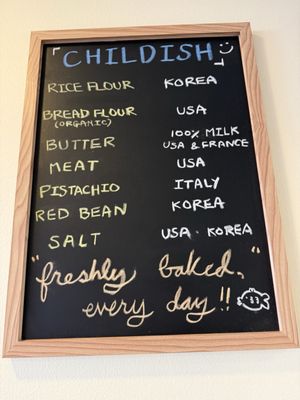 CHILDISH
RICE FLOUR KOREA
BREAD FLOUR USA
(ORGANIC)
BUTTER 100% MILK
USA & FRANCE
MEAT USA
PISTACHIO ITALY
RED BEAN KOREA
SALT USA · KOREA
"freshly baked, "
every day!!